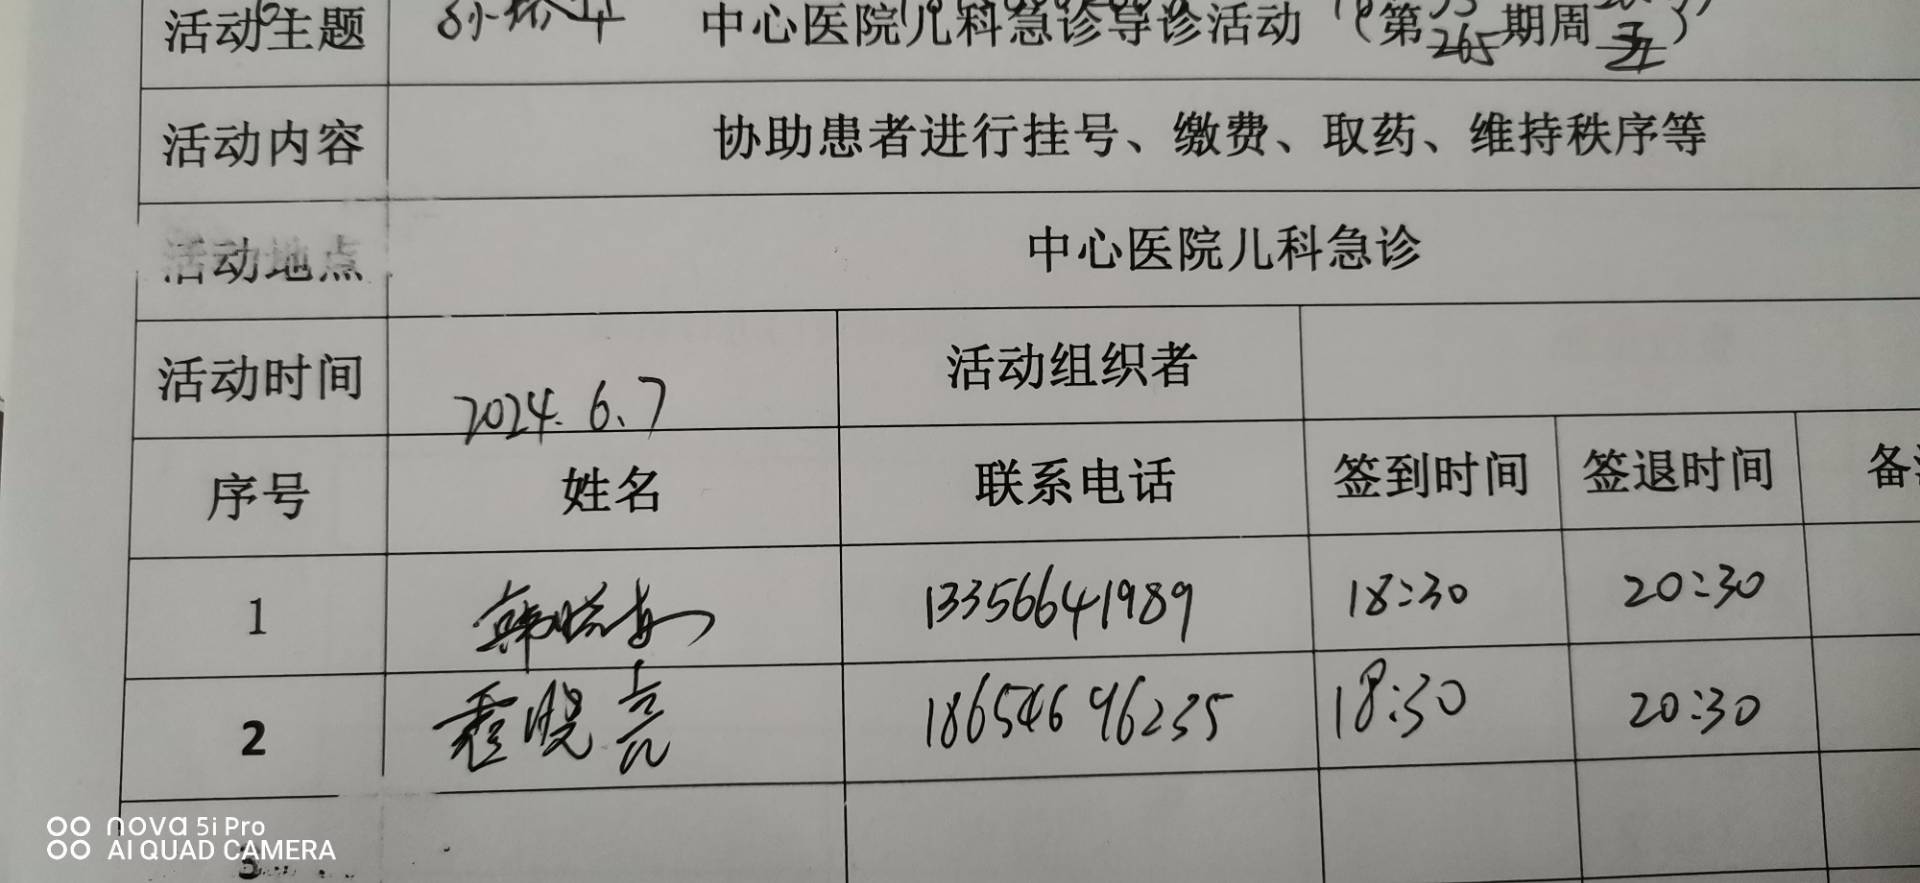 活动主题 中心医院儿科急诊导诊活动 (第265期周五)
活动内容 协助患者进行挂号、缴费、取药、维持秩序等
活动地点 中心医院儿科急诊
活动时间 2024.6.7 活动组织者
序号 姓名 联系电话 签到时间 签退时间
1 韩晓 13356641989 18:30 20:30
2 程晓亮 18654696235 18:30 20:30
3
nova 5i Pro
AI QUAD CAMERA